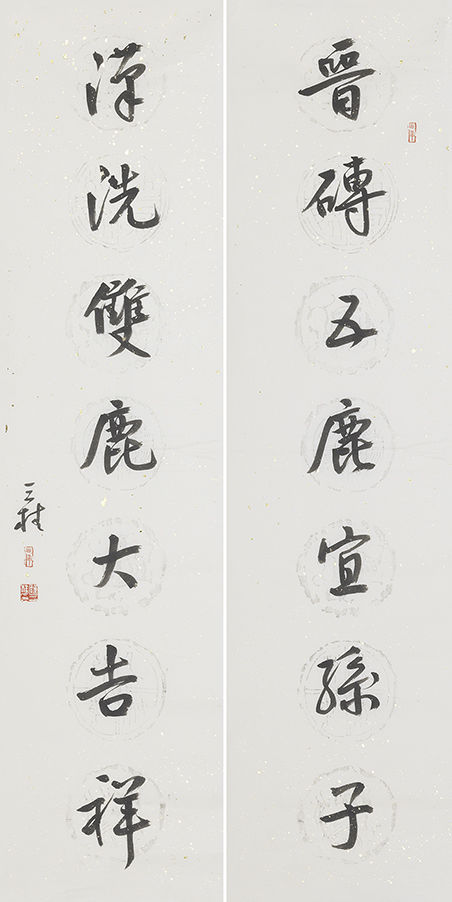 晉磚五鹿宜孫子
漢洗雙鹿大吉祥